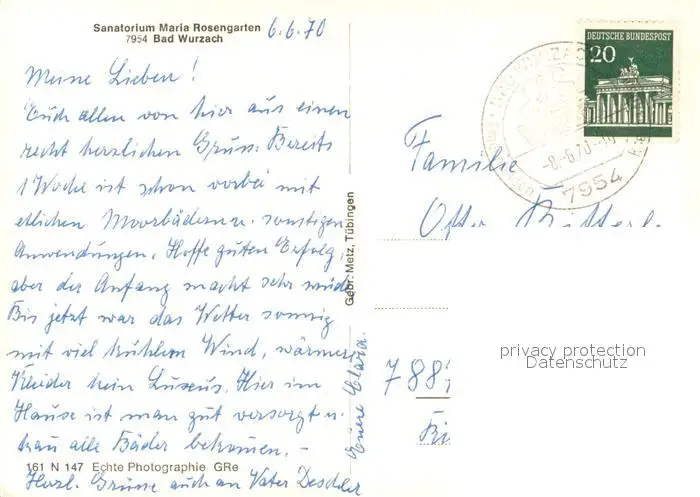 Sanatorium Maria Rosengarten
7954 Bad Wurzach
6.6.70
Meine Lieben!
Euch allen von hier aus einen
recht herzlichen Gruss. Bereits
1 Woche ist schon vorbei mit
etlichen Moorbädern u. sonstigen
Anwendungen. Hoffe guten Erfolg,
aber der Anfang macht sehr müde
Bis jetzt war das Wetter sonnig
mit viel kühlem Wind, wärmere
Kleider kein Luxus. Hier im
Hause ist man gut versorgt u.
kan alle Bäder bekommen. –
Herzl. Grüsse auch an Vater Deschler
Eure Clara.
161 N 147 Echte Photographie GRe
Gebr. Metz, Tübingen
DEUTSCHE BUNDESPOST
20
-8.-6.70-
7954
Familie
788
privacy protection
Datenschutz